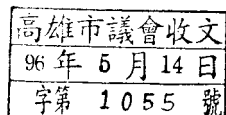 高雄市議會收文
96年5月14日
字第1055號